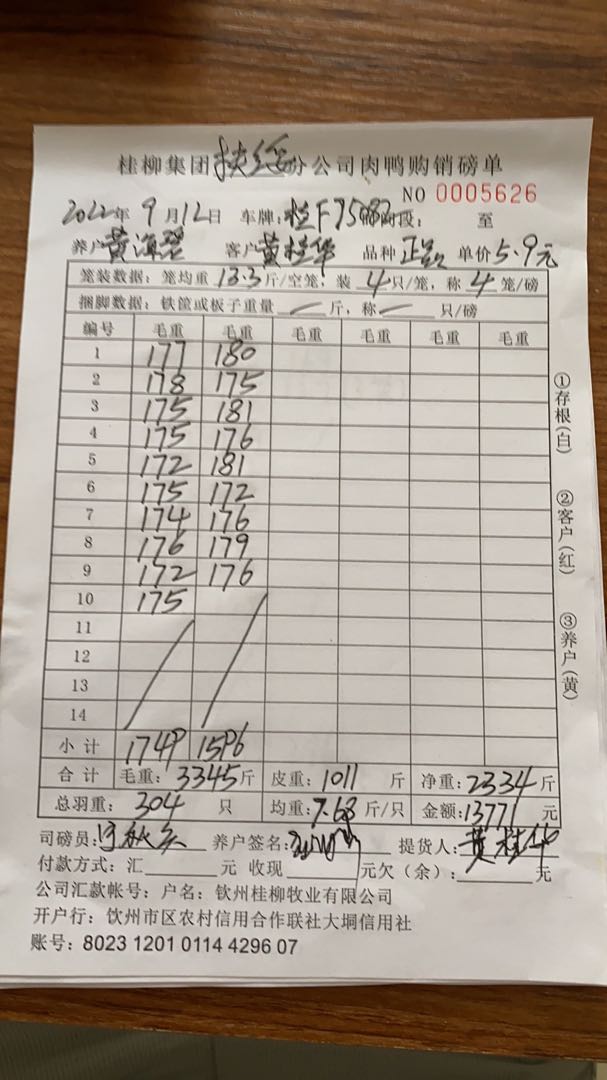 桂柳集团扶绥分公司肉鸭购销磅单
NO 0005626
2022年9月12日 车牌:桂F75082 时段: 至
养户黄海 客户黄桂华 品种 正品 单价5.9元
笼装数据:笼均重13.3斤/空笼,装4只/笼,称4笼/磅
捆脚数据:铁筐或板子重量 — 斤,称 — 只/磅
编号 毛重 毛重 毛重 毛重 毛重 毛重
1 177 180
2 178 175
3 175 181
4 175 176
5 172 181
6 175 172
7 174 176
8 176 179
9 172 176
10 175
11
12
13
14
小计 1749 1596
合计 毛重:3345斤 皮重:1011斤 净重:2334斤
总羽重:304只 均重:7.68斤/只 金额:13771元
司磅员: 养户签名: 提货人:黄桂华
付款方式:汇 元 收现 元欠(余): 元
公司汇款帐号:户名:钦州桂柳牧业有限公司
开户行:钦州市区农村信用合作联社大垌信用社
账号:8023 1201 0114 4296 07
①存根(白) ②客户(红) ③养户(黄)